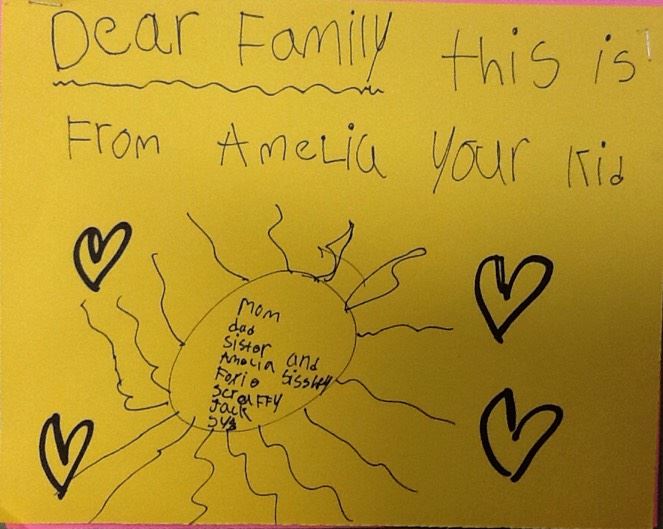 Dear Family this is
From Amelia your Kid
Mom
dad
Sister
Amelia and
Forio Sisshy
Scraffy
Jack